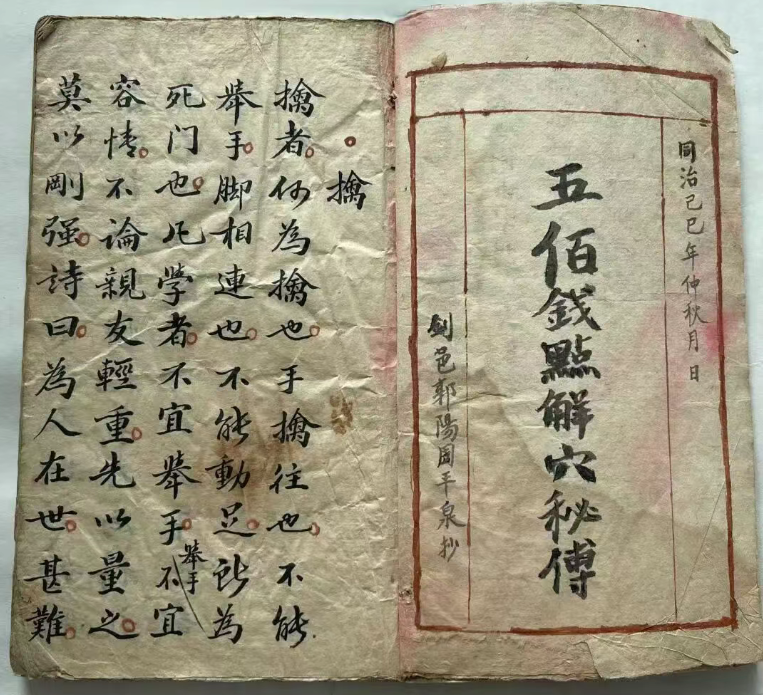 同治己巳年仲秋月日
五佰錢點解穴秘傅
劍邑郭陽周平泉抄
擒
擒者何為擒也手擒往也不能
舉手脚相連也不能動足此為
死门也凡學者不宜舉手不宜
舉手
容情不論親友輕重先以量之
莫以剛强詩曰為人在世甚難